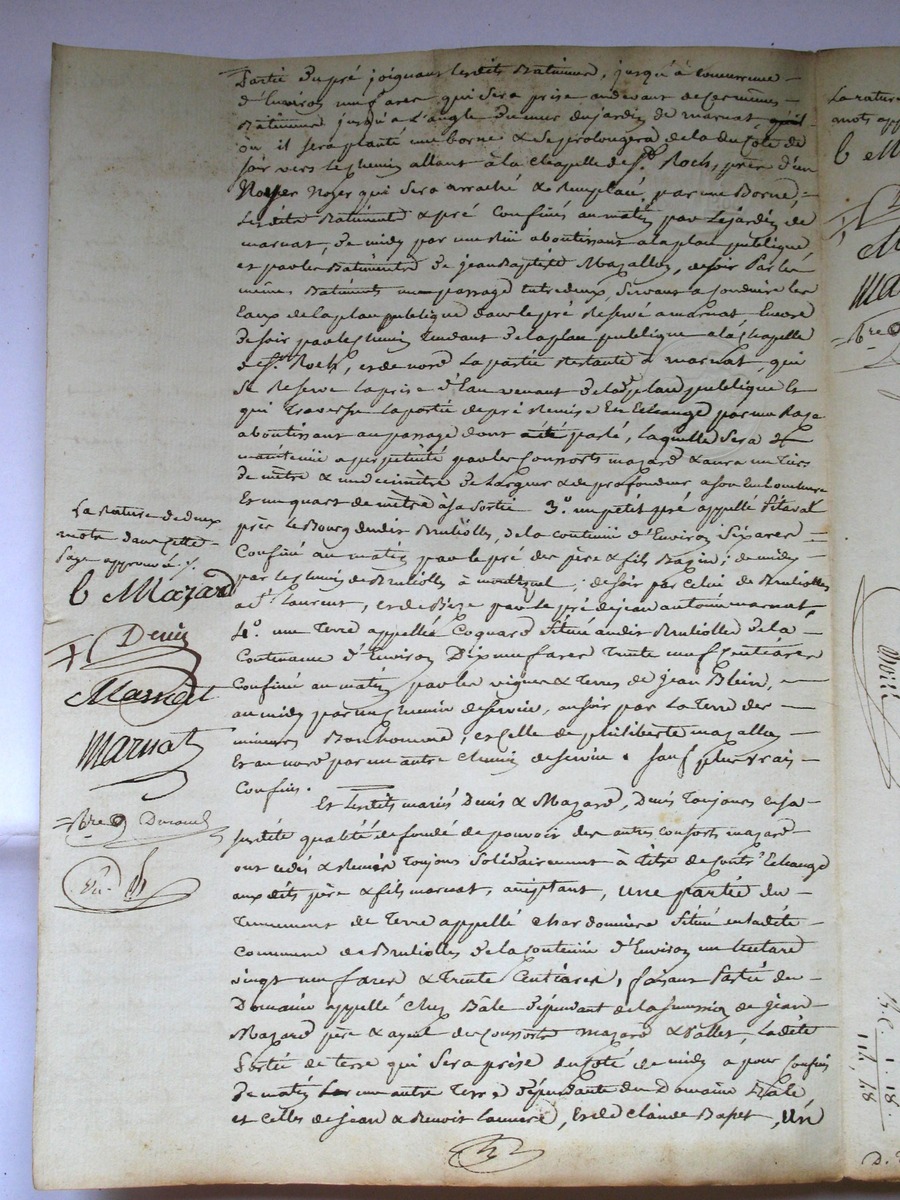 Partie du pré joignant lesdits Batimens, jusqu'à concurrence
d'Environ neuf ares qui sera prise audevant de ces mêmes
Batimens jusqu'a l'angle du mur du jardin de marnat
ou il sera planté une borne & se prolongera de la du Coté de
soir vers le chemin allant à la chapelle de St. Roch, près d'un
Noyer qui sera arraché & Remplacé par une Borne,
Lesdits Batiments & pré Confinés au matin par le jardin de
marnat, de midy par une aboutissant a la place publique
et par les Batiments de jean Baptiste Mazallon, de soir Par les
mêmes Batiments un passage entredeux, servant a Conduire les
Eaux de la place publique dans le pré Reservé a marnat Encore
de soir par le chemin tendant de la place publique a la Chapelle
de St. Roch, et de nord la partie Restante à marnat, qui
se Reserve la prise d'Eau venant de lad. place publique Et
qui Traverse la partie de pré Remise En Echange par une Raze
aboutissant au passage dont a été parlé, laquelle sera
maintenue a perpetuité par les Consorts mazard & aura un tiers
de mètre & un decimètre de Largeur & de profondeur a son Embouchure
Et un quart de mètre à sa sortie 3o. un petit pré appellé Pitaval
près le Bourg dudit Brullioles, de la contenue d'Environ Six ares
Confiné au matin par le pré des père & fils Bazin; de midy
par le chemin de Brullioles à ; de soir par Celui de Brullioles
a St. Laurent, et de Bize par le pré de jean antoine marnat,
4o. une Terre appellée Coquard située audit Brulliole de la
Contenance d'Environ Dixneuf ares Trente neuf Centiares
Confiné au matin par les vignes & Terres de jean Blein,
au midy par un Chemin de servie, au soir par la Terre des
mineurs Bonhomme, et celle de philiberte mazallon
Et au nord par un autre Chemin de servie. Sauf plus vrais
Confins.
Et Lesdits mariés Denis & Mazard, Denis Toujours en sa
susdite qualité de fondé de pouvoir des autres consorts mazard
ont cedés & Remis Toujours solidairement à titre de contr'Echange
auxdits père & fils marnat, acceptant, une partie du
Tennement de Terre appellé Chardonnière située en ladite
Commune de Brullioles de la Contenue d'Environ un hectare
vingt neuf ares & Trente Centiares, faisant Partie du
Domaine appellé Chez Bâle dépendant de la succession de jean
Mazard père & ayeul des Consorts mazard & Pallet, Ladite
Partie de terre qui sera prise du Coté de midy a pour Confins
De matin une autre Terre dépendante du Domaine Bale,
et Celles de jean & Benoit , Et de Claude Bapet, un
La rature de deux
mots dans cette
Page approuvée ./.
b Mazard
Denis
Marnat
Marnat
Durand
La rature
mots app
b M
Ma
B. C.
1. 18.